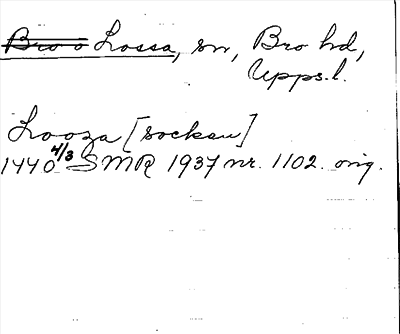 Bro o Lossa, sn, Bro hd,
Upps.l.
Looza [sockæn]
1440 4/3 SMR 1937 nr. 1102. orig.